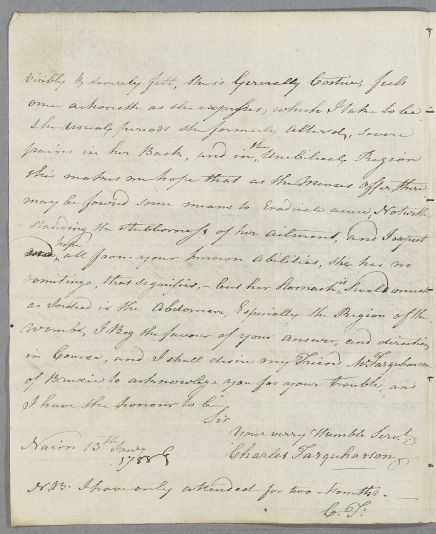 visibly & severely felt, she is Generally Costive, feels
one a month as she expresses, which I take to be
the usual periods she formerly altered, severe
pains in her Back, and in the Umbilical Region
this makes me hope that as the Menses offer, there
may be found some means to Eradicate a cure, Notwith-
standing the stubborness of her ailment, and I expect
hope all from your known Abilities, she has no
vomitings, that signifies, – but her Stomach is Sweld
as Indeed is the Abdomen, Especially the Region of the
Womb, I Beg the favour of your answer, and direction
in Course, and I shall desire my Friend Mr Farquharson
of Bruxie to acknowlege you for your trouble, and
I have the honour to be
Sir
Your verry Humble Servt.
Nairn 13th Janry 1788 Charles Farquharson
N.B. I have only attended for two Months.
C. F: